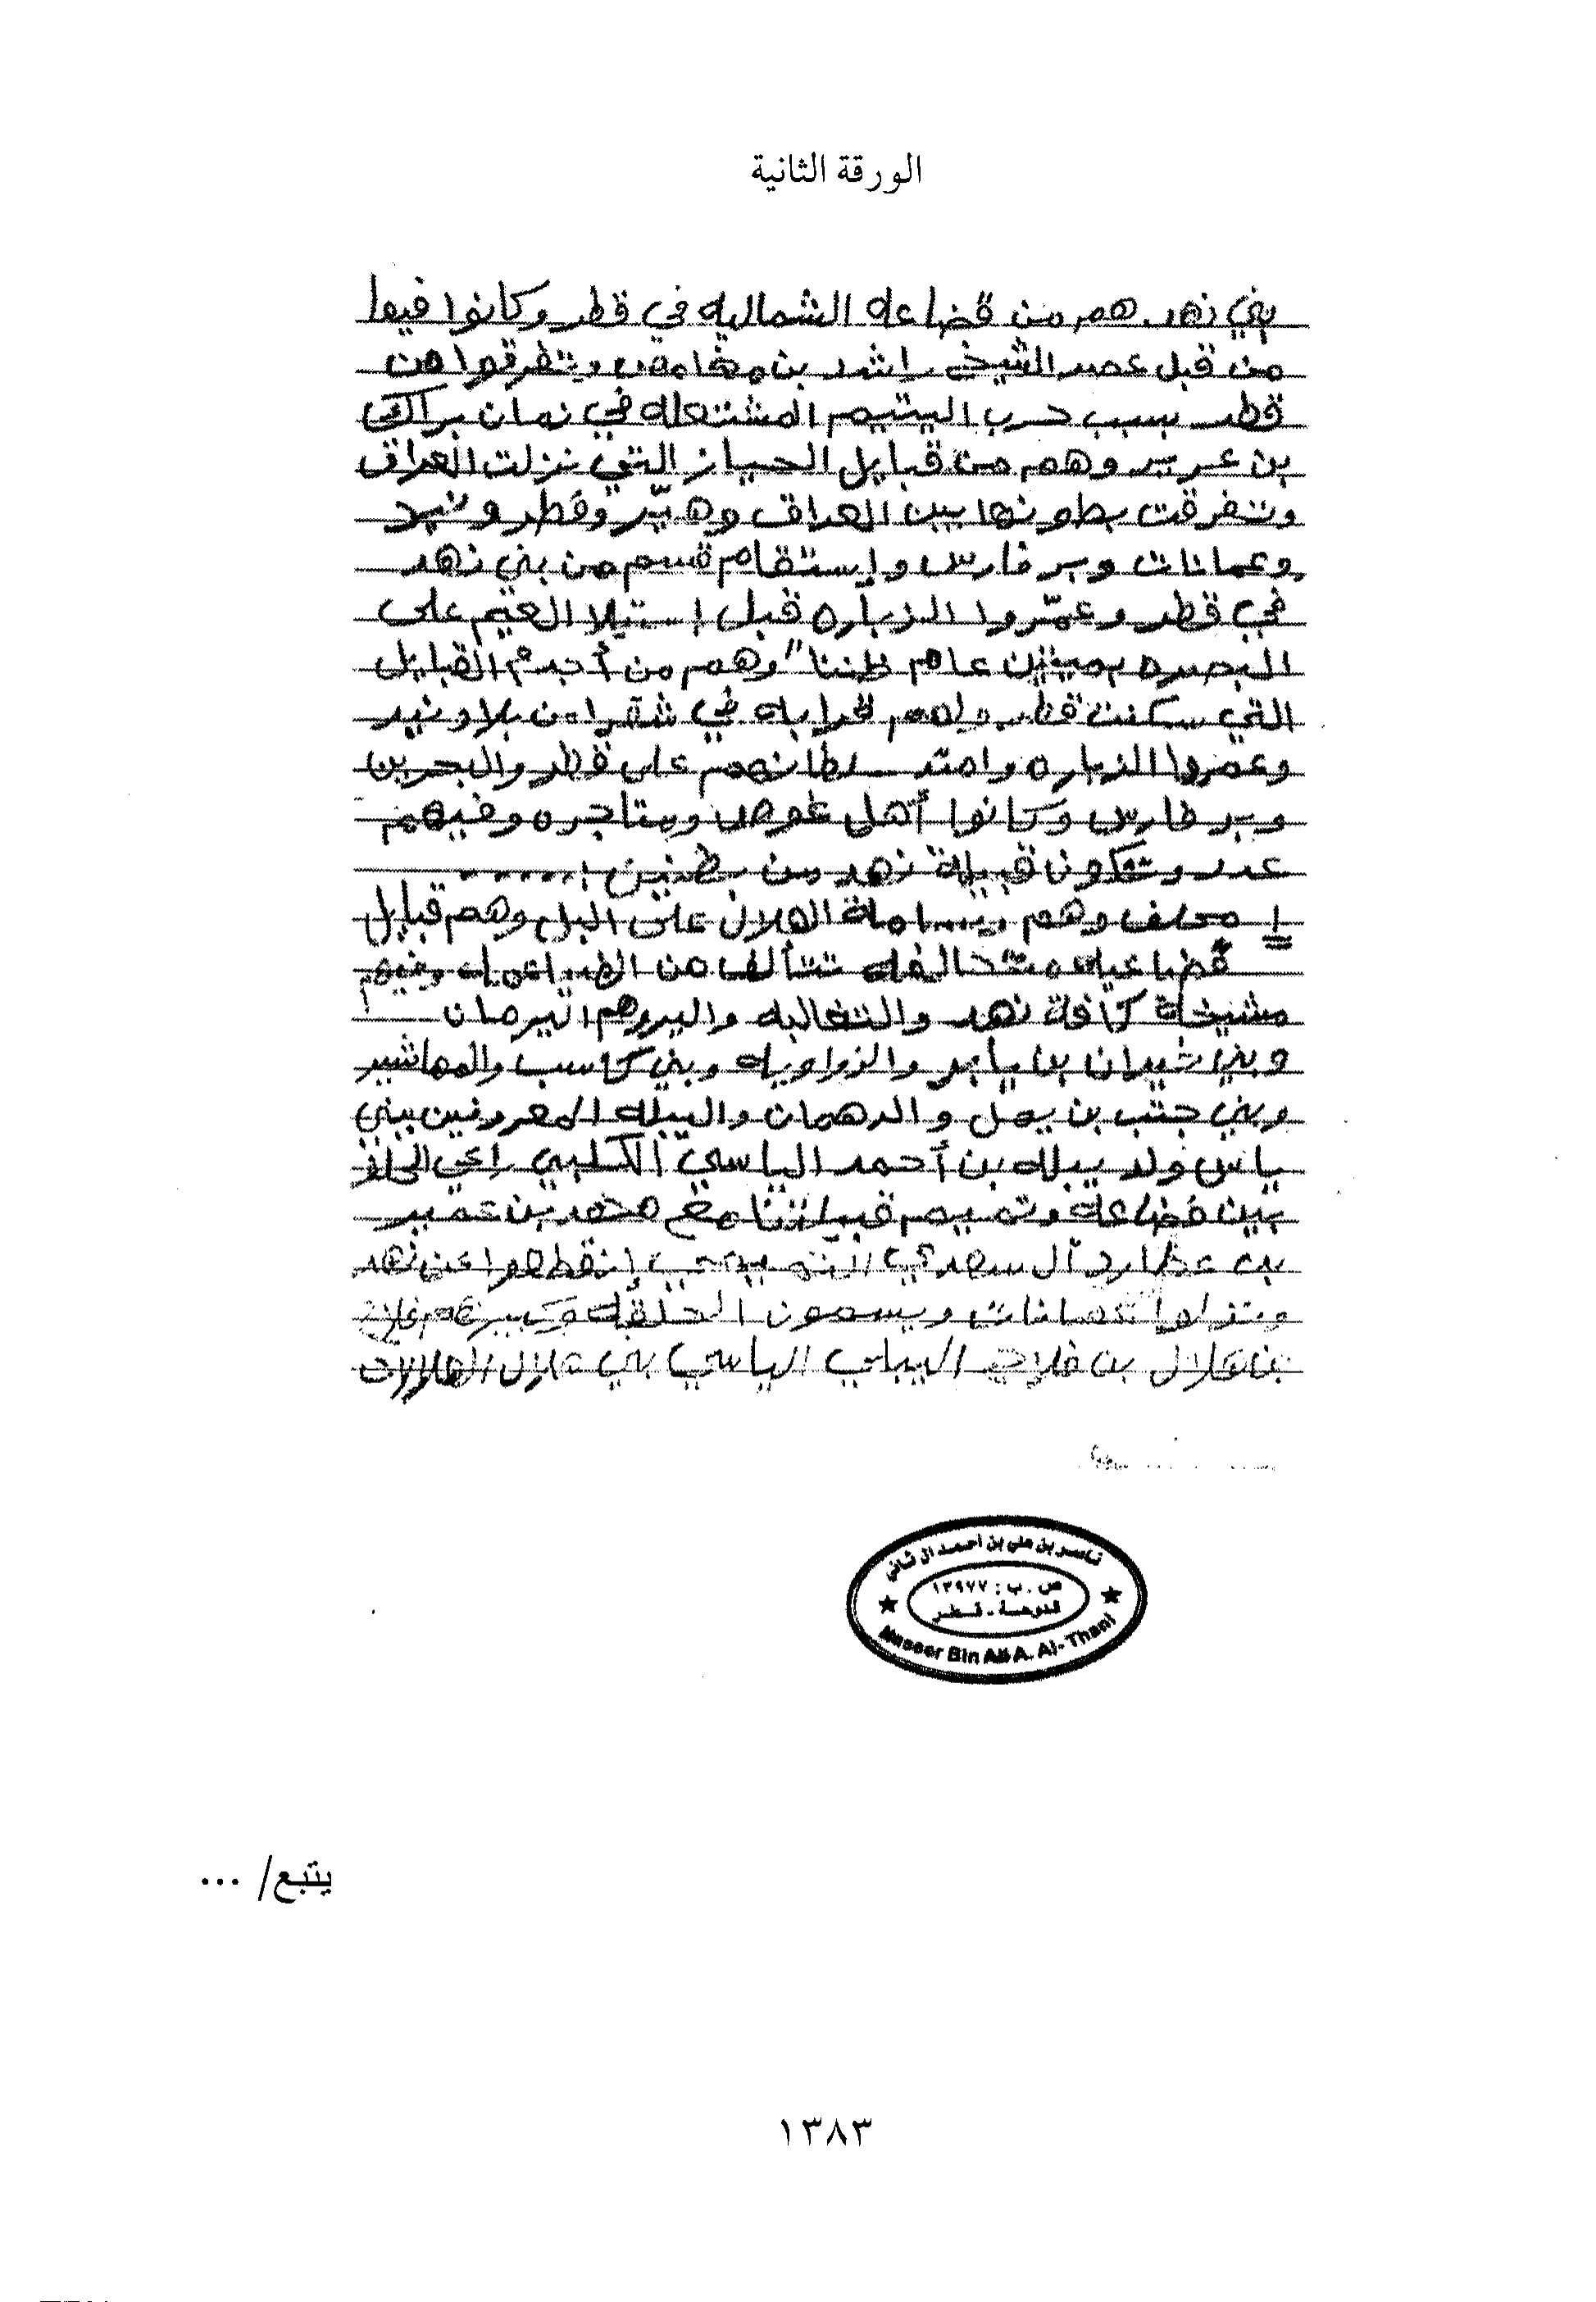 الورقة الثانية
بني نهد هم من قضاعه الشماليه في قطر وكانوا فيها
من قبل عصر الشيخ راشد بن مغامس وتفرقوا من
قطر بسبب حرب اليتيم المشتعله في زمان براك
بن عريعر وهم من قبايل الحياز التي نزلت العراق
وتفرقت بطونها بين العراق وهيّر وقطر ونيد
وعمانات وبر فارس وإستقام قسم من بني نهد
في قطر وعمّروا الزباره قبل إستيلا العيم على
البصره بميتين عام ظننا" وهم من أجدم القبايل
التي سكنت قطر ولهم قرابه في شقرا من بلاد نيد
وعمروا الزباره وامتد سلطانهم على قطر والبحرين
وبر فارس وكانوا أهل غوص ومتاجره وفيهم
عدد وتتكون قبيلة نهد من بطنين :.....
١ محلف وهم ويسامة الهلان على البل وهم قبايل
قضاعيه متحالفه تتألف من وفيهم
مشيخة كافة نهد والتغالبه واليروهم اليرمان
وبني خيران بن يابر والزراويه وبني كاسب والمهاشير
وبني جنب بن يعل والدهمان والبيله المعروفين ببني
ياس ولد بيله بن أحمد الياسيّ الكلبي راعي الحلف
بين قضاعه وتميم قبيلتنا مع محمد بن عمير
بن عطارد آل سعدي التميمي إنقطعوا عن نهد
ونزلوا عمانات ويسمون الحلقه وكبيرهم فلاح
بن هلال بن فلاح البيلي الياسي بني هلال الهلالات
ناصر بن علي بن أحمد ال ثاني
ص . ب : ١٣٩٧٧
الدوحة - قطر
Nasser Bin Ali A. Al-Thani
يتبع/ ...
١٣٨٣